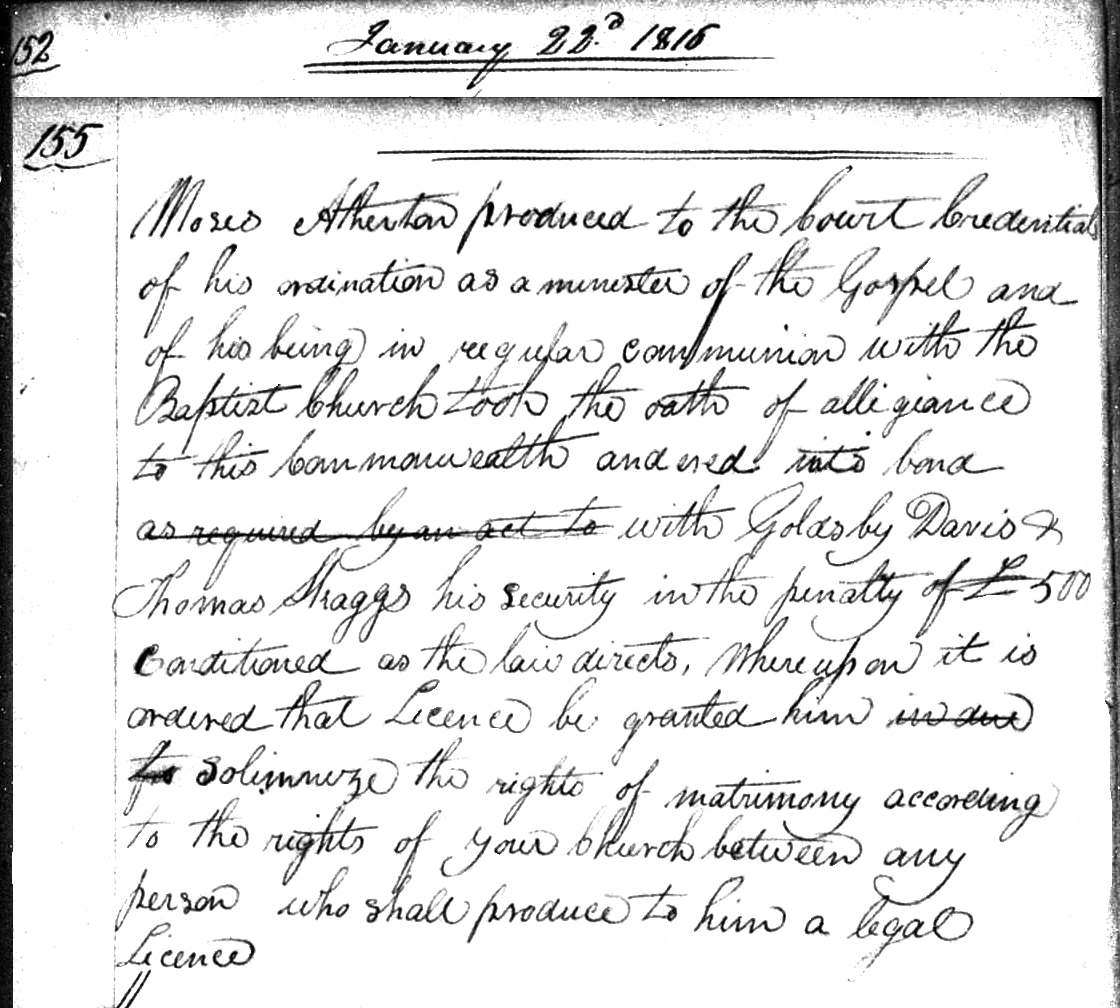 152
January 22d 1816
155
Moses Atherton produced to the Court Credentials
of his ordination as a minester of the Gospel and
of his being in regular communion with the
Baptist Church took the oath of alligiance
to this Commonwealth and ered into bond
as required by an act to with Goldsby Davis &
Thomas Skaggs his security in the penalty of £ 500
Conditioned as the law directs, Whereupon it is
ordered that Licence be granted him in due
to Solimnize the rights of matrimony according
to the rights of your Church between any
person who shall produce to him a legal
Licence